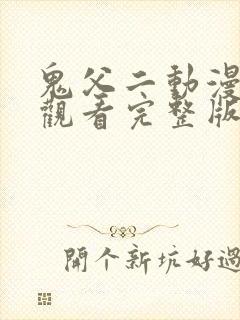 鬼父二動漫
觀看完整版
開个新坑好過